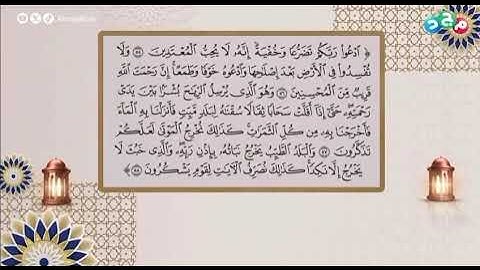 مجد
﴿ ٱدْعُوا۟ رَبَّكُمْ تَضَرُّعًا وَخُفْيَةً ۚ إِنَّهُۥ لَا يُحِبُّ ٱلْمُعْتَدِينَ ٥٥ وَلَا
تُفْسِدُوا۟ فِى ٱلْأَرْضِ بَعْدَ إِصْلَٰحِهَا وَٱدْعُوهُ خَوْفًا وَطَمَعًا ۚ إِنَّ رَحْمَتَ ٱللَّهِ
قَرِيبٌ مِّنَ ٱلْمُحْسِنِينَ ٥٦ وَهُوَ ٱلَّذِى يُرْسِلُ ٱلرِّيَٰحَ بُشْرًۢا بَيْنَ يَدَىْ
رَحْمَتِهِۦ ۖ حَتَّىٰٓ إِذَآ أَقَلَّتْ سَحَابًا ثِقَالًا سُقْنَٰهُ لِبَلَدٍ مَّيِّتٍ فَأَنزَلْنَا بِهِ ٱلْمَآءَ
فَأَخْرَجْنَا بِهِۦ مِن كُلِّ ٱلثَّمَرَٰتِ ۚ كَذَٰلِكَ نُخْرِجُ ٱلْمَوْتَىٰ لَعَلَّكُمْ
تَذَكَّرُونَ ٥٧ وَٱلْبَلَدُ ٱلطَّيِّبُ يَخْرُجُ نَبَاتُهُۥ بِإِذْنِ رَبِّهِۦ ۖ وَٱلَّذِى خَبُثَ لَا
يَخْرُجُ إِلَّا نَكِدًا ۚ كَذَٰلِكَ نُصَرِّفُ ٱلْـَٔايَٰتِ لِقَوْمٍ يَشْكُرُونَ ٥٨ ﴾